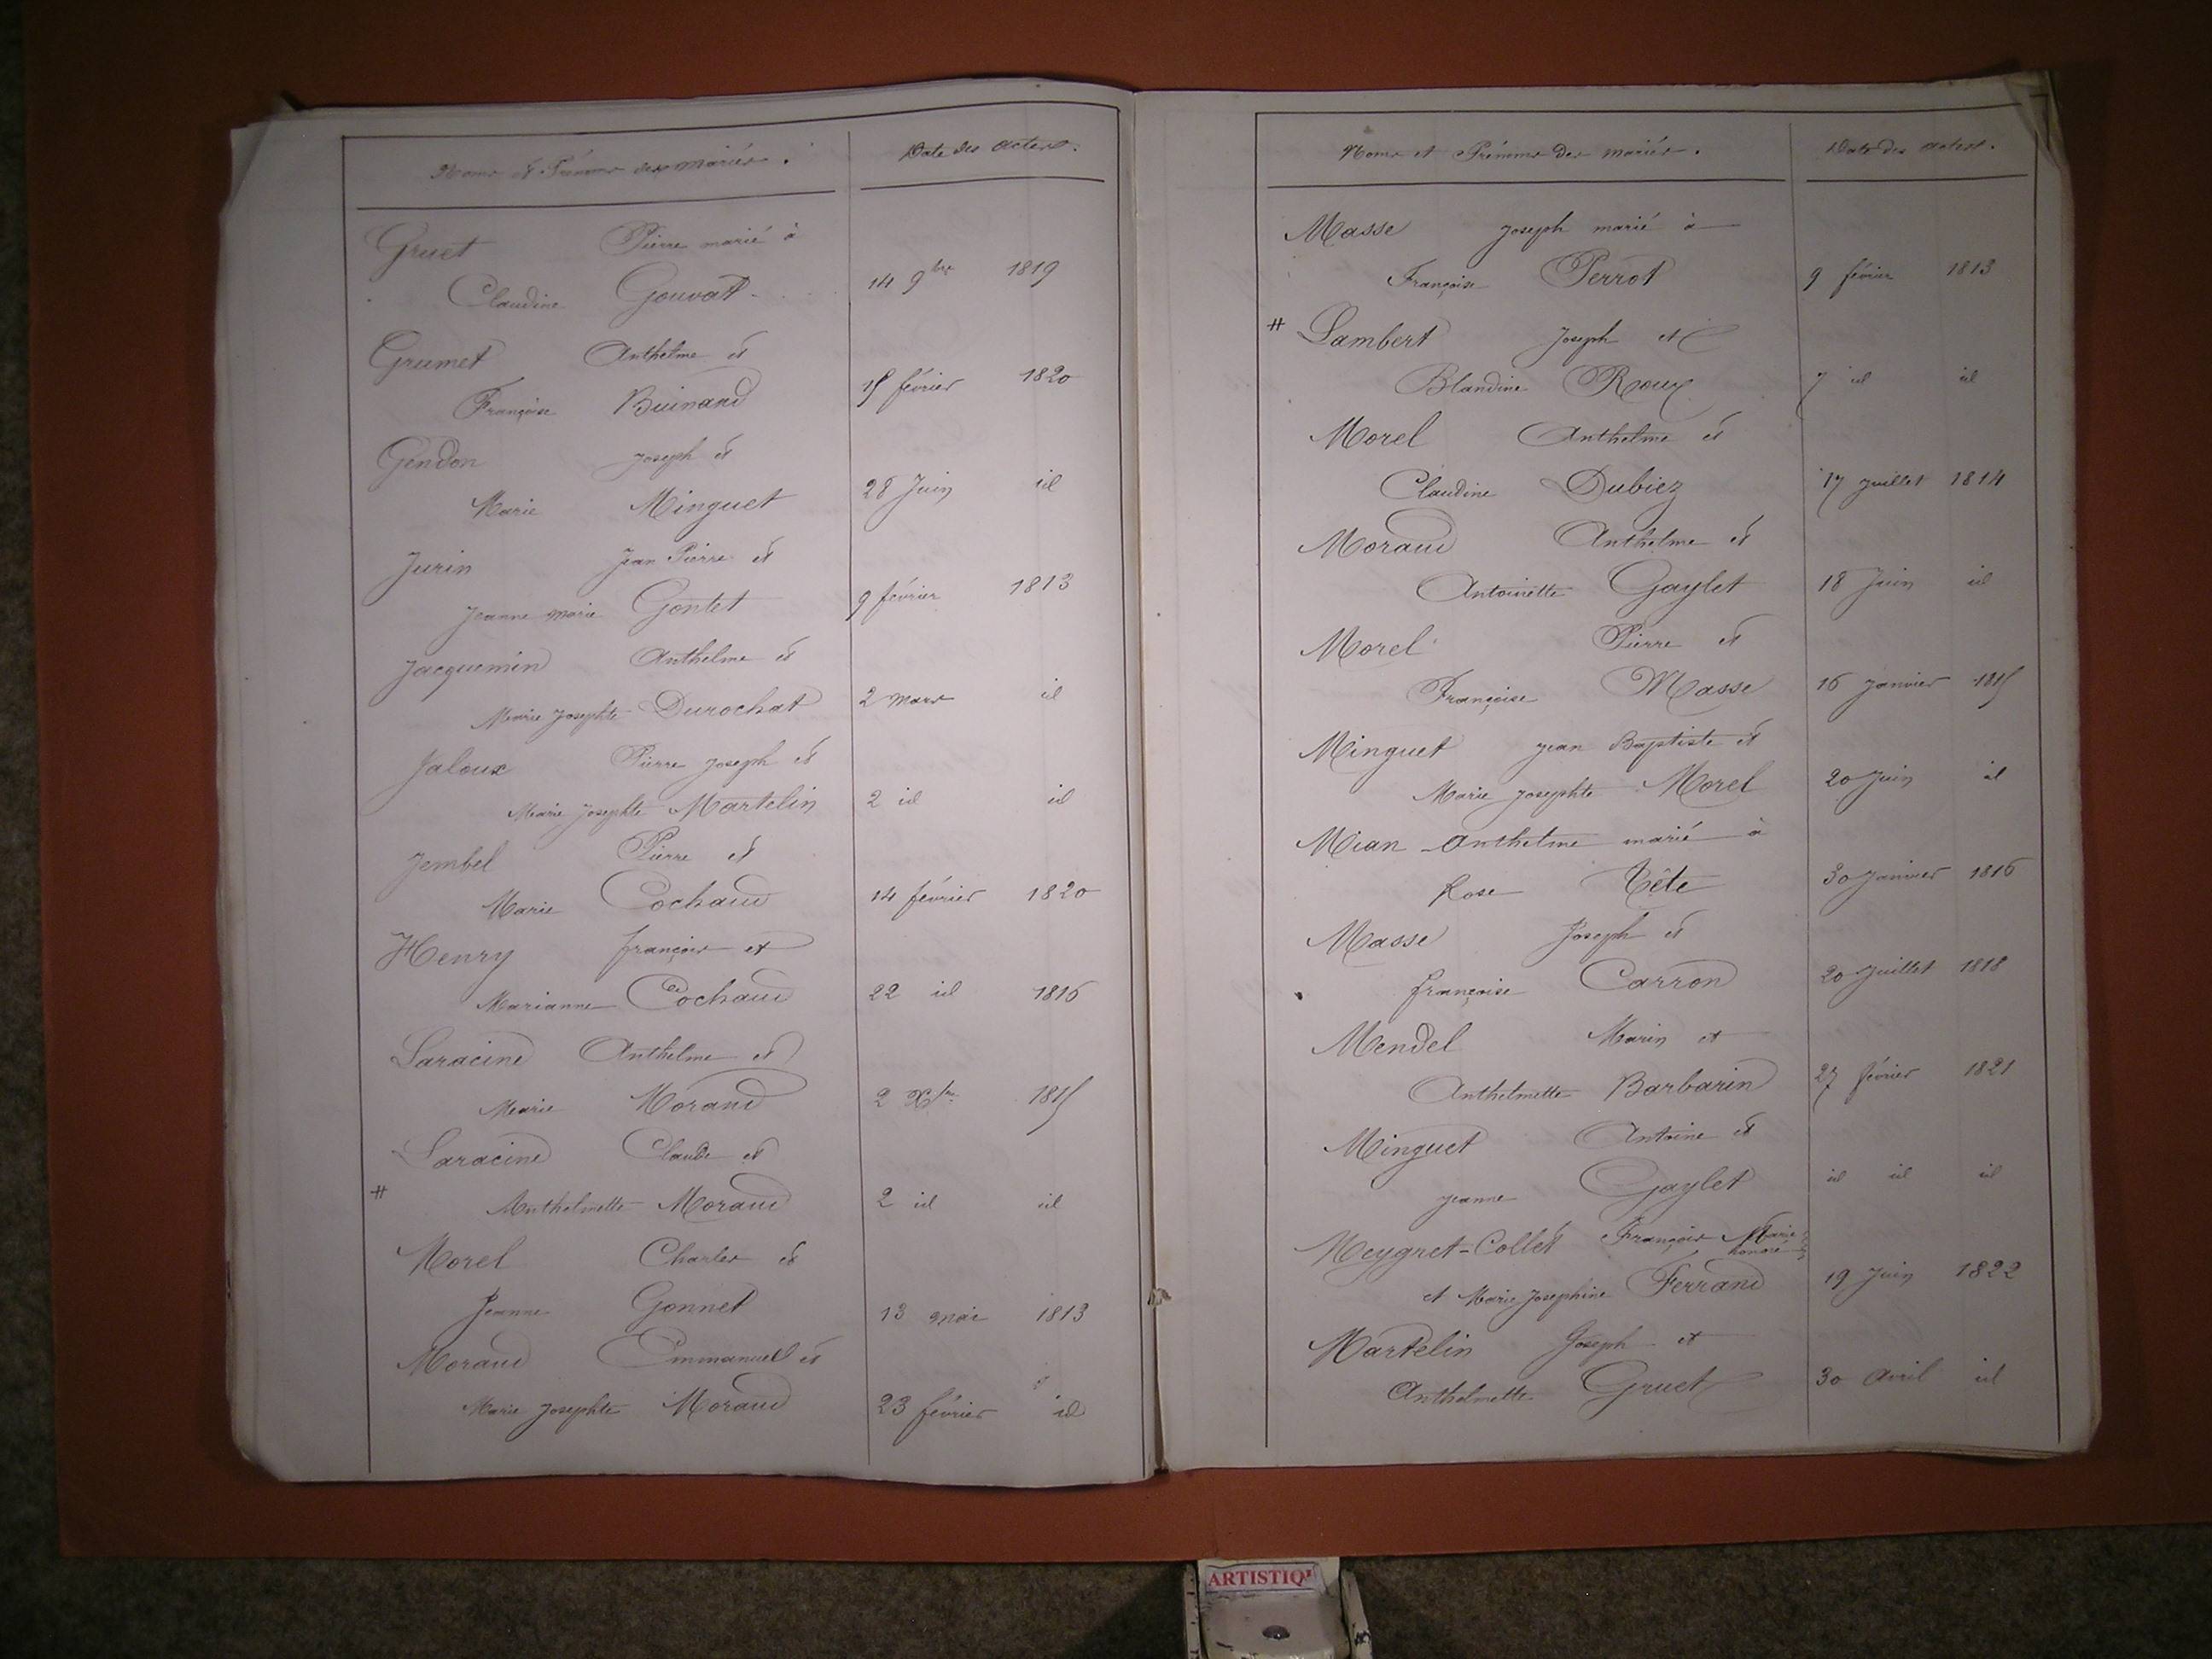 Noms et Prénoms des mariés. Date des actes.
Gruet Pierre marié à
Claudine Gouvat 14 9bre 1819
Grumet Anthelme et
Françoise Buinand 15 février 1820
Gendon Joseph et
Marie Minguet 28 Juin id
Jurin Jean Pierre et
Jeanne Marie Gontet 9 février 1813
Jacquemin Anthelme et
Marie Josephte Durochat 2 mars id
Jaloux Pierre Joseph et
Marie Josephte Martelin 2 id id
Jembel Pierre et
Marie Cochand 14 février 1820
Henry françois et
Marianne Cochand 22 id 1816
Laracine Anthelme et
Marie Morand 2 Xbre 1815
Laracine Claude et
# Anthelmette Morand 2 id id
Morel Charles et
Jeanne Gonnet 13 mai 1813
Morand Emmanuel et
Marie Josephte Morand 23 février id
Noms et Prénoms des mariés. Date des actes.
Masse Joseph marié à
Françoise Perrot 9 février 1813
# Lambert Joseph et
Blandine Roux 7 id id
Morel Anthelme et
Claudine Dubiez 17 Juillet 1814
Morand Anthelme et
Antoinette Gaylet 18 Juin id
Morel Pierre et
Françoise Masse 16 Janvier 1815
Minguet Jean Baptiste et
Marie Josephte Morel 20 Juin id
Mian Anthelme marié à
Rose Tête 30 Janvier 1816
Masse Joseph et
françoise Carron 20 Juillet 1818
Mendel Marin et
Anthelmette Barbarin 27 février 1821
Minguet Antoine et
Jeanne Gaylet id id id
Meygret-Collet François Marie
honoré
et Marie Josephine Ferrand 19 Juin 1822
Martelin Joseph et
Anthelmette Gruet 30 Avril id
ARTISTIQ